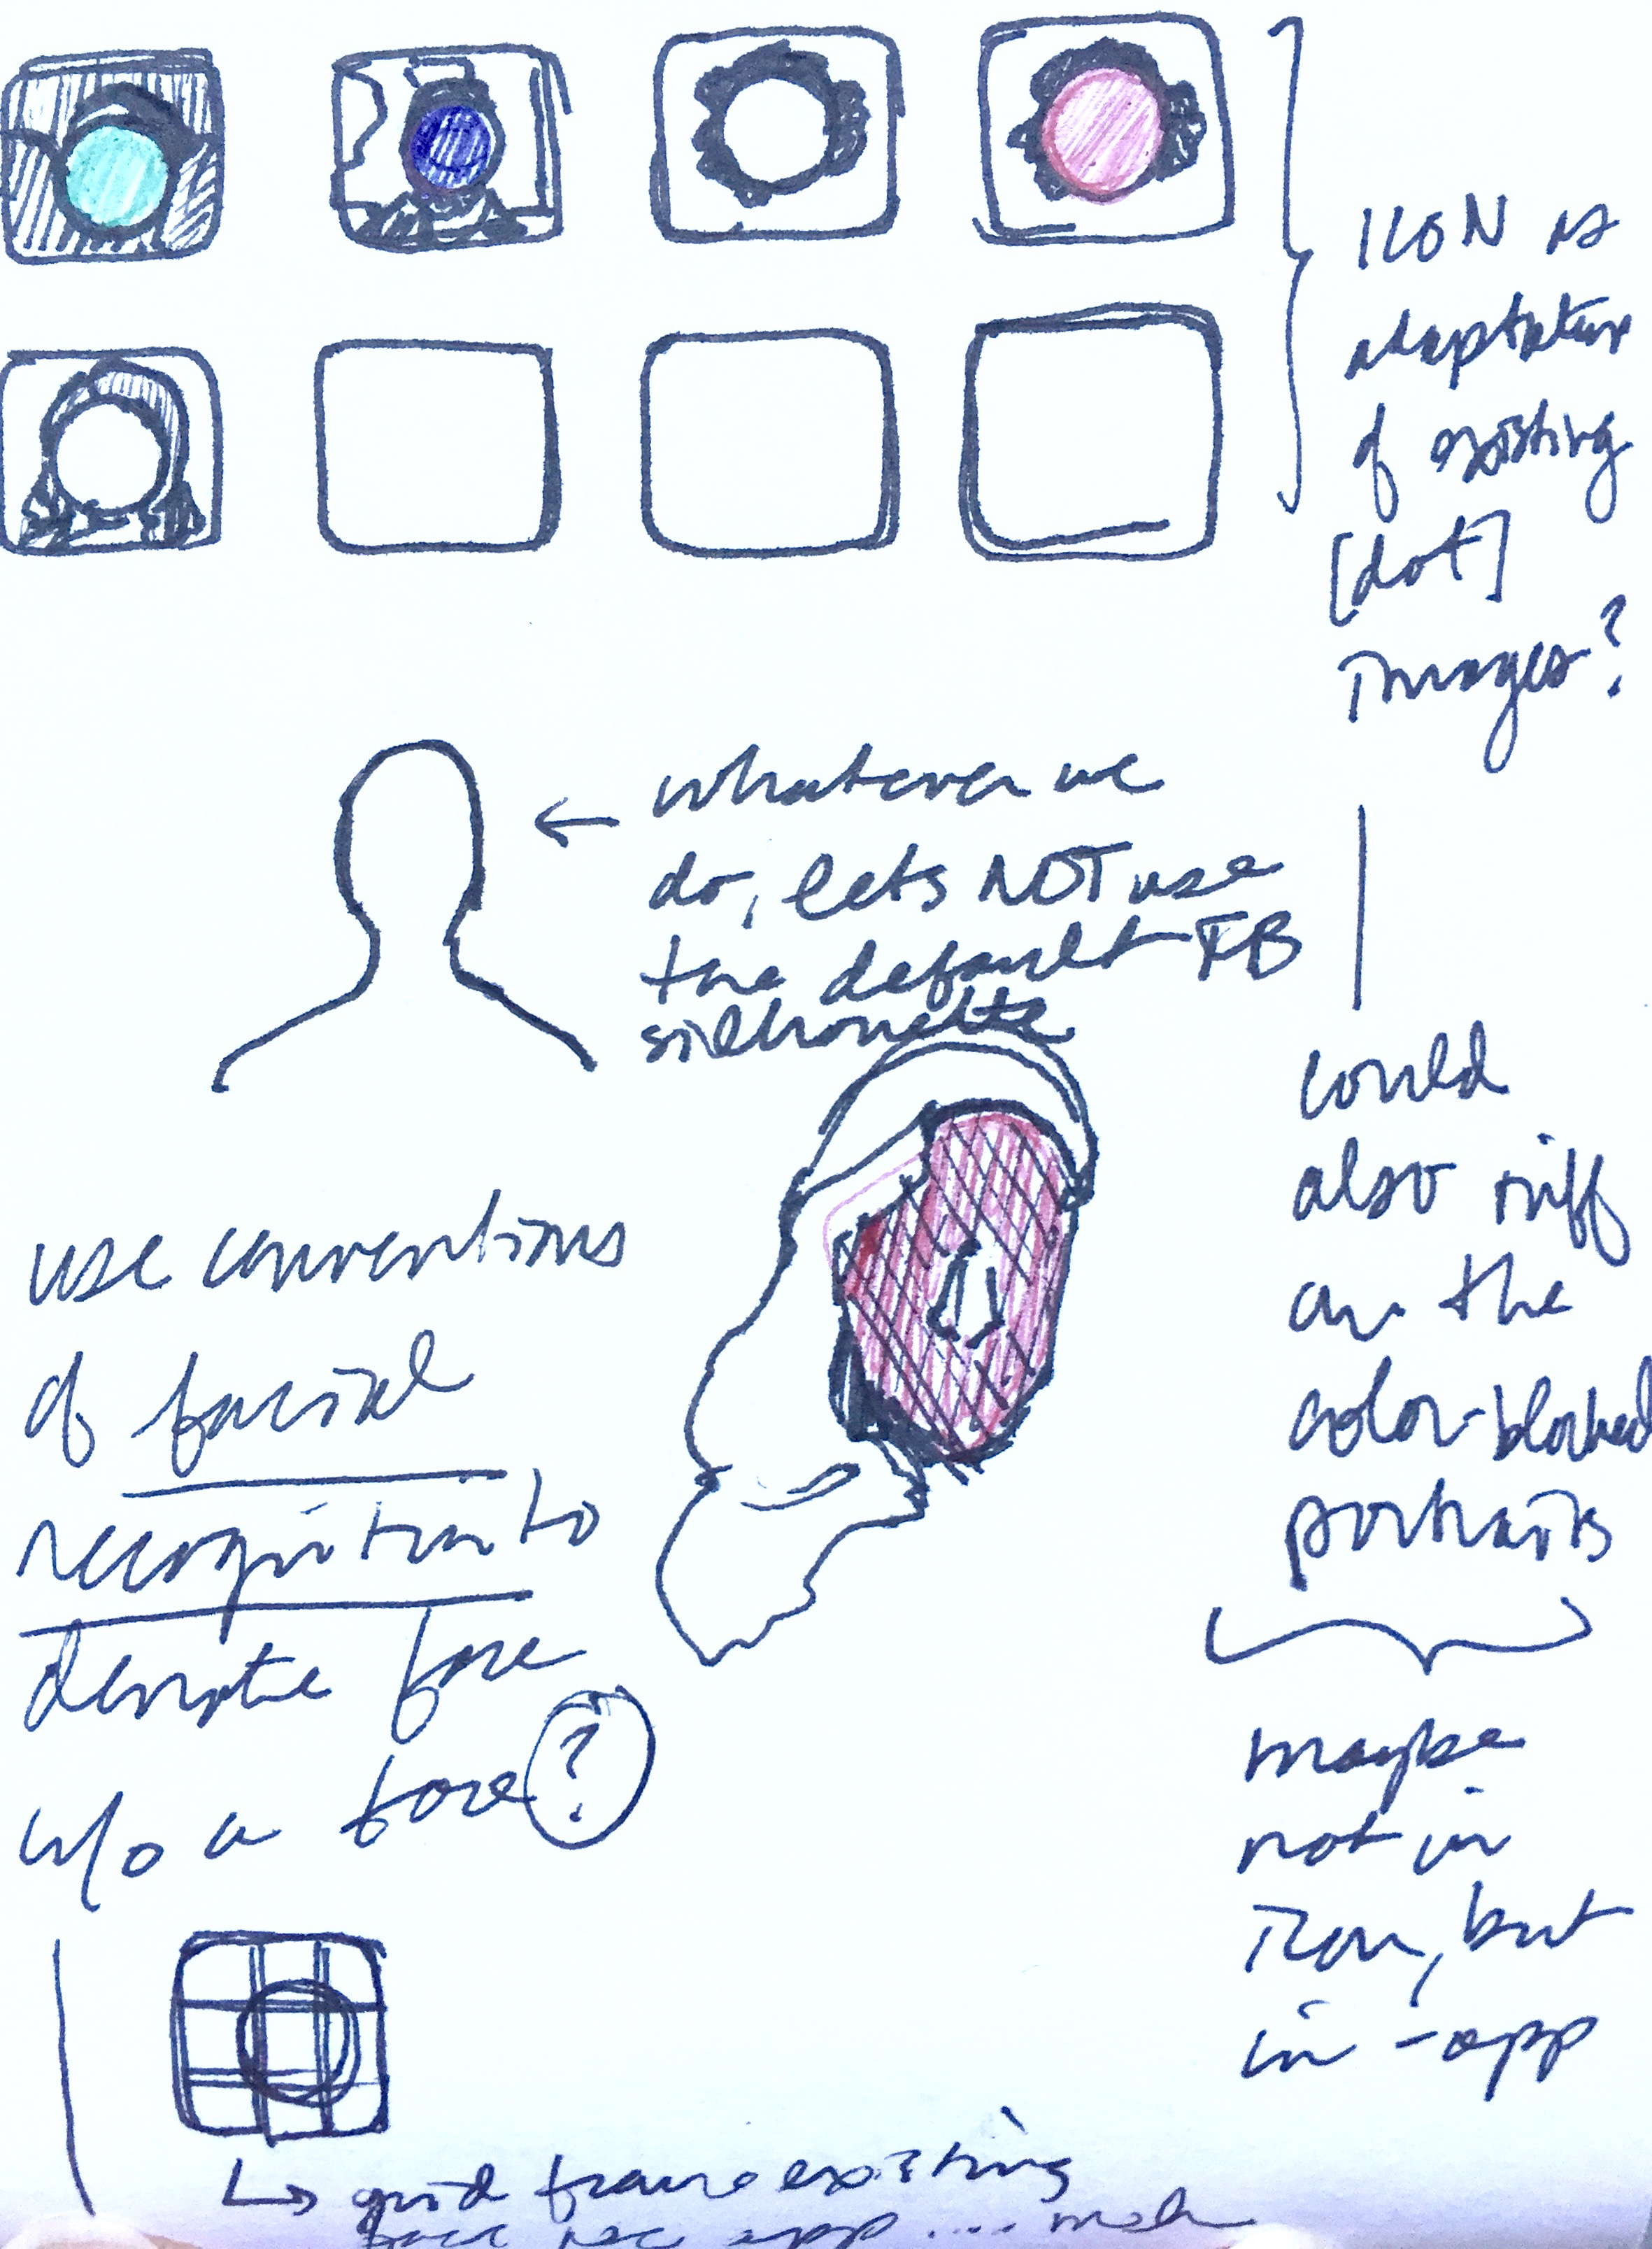 ICON is
adaptation
of existing
[dot]
images?
whatever we
do, lets NOT use
the default FB
silhouette
could
also riff
on the
color-blocked
portraits
maybe
not in
Icon, but
in-app
use conventions
of facial
recognition to
denote face
w/o a face?
↳ grid from existing
face rec app....